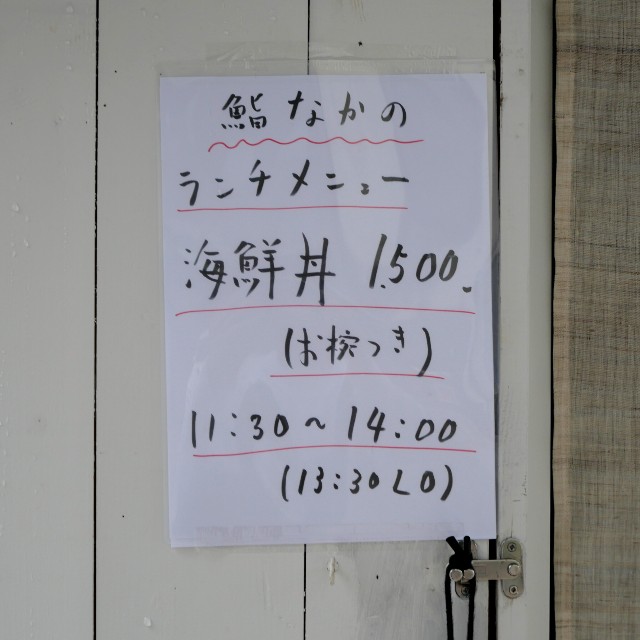 鮨 なかの
ランチメニュー
海鮮丼 1,500.
(お椀つき)
11:30～14:00
(13:30 LO)